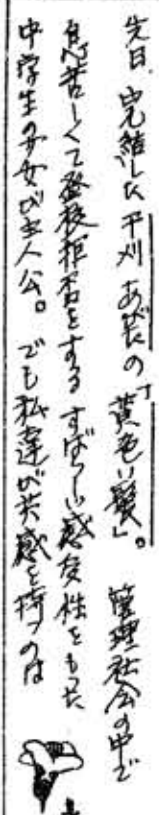 先日、完結した干刈あがたの「黄色い髪」。管理社会の中で
息苦しくて登校拒否をするすばらしい感受性をもった
中学生の少女が主人公。でも私達が共感を持つのは